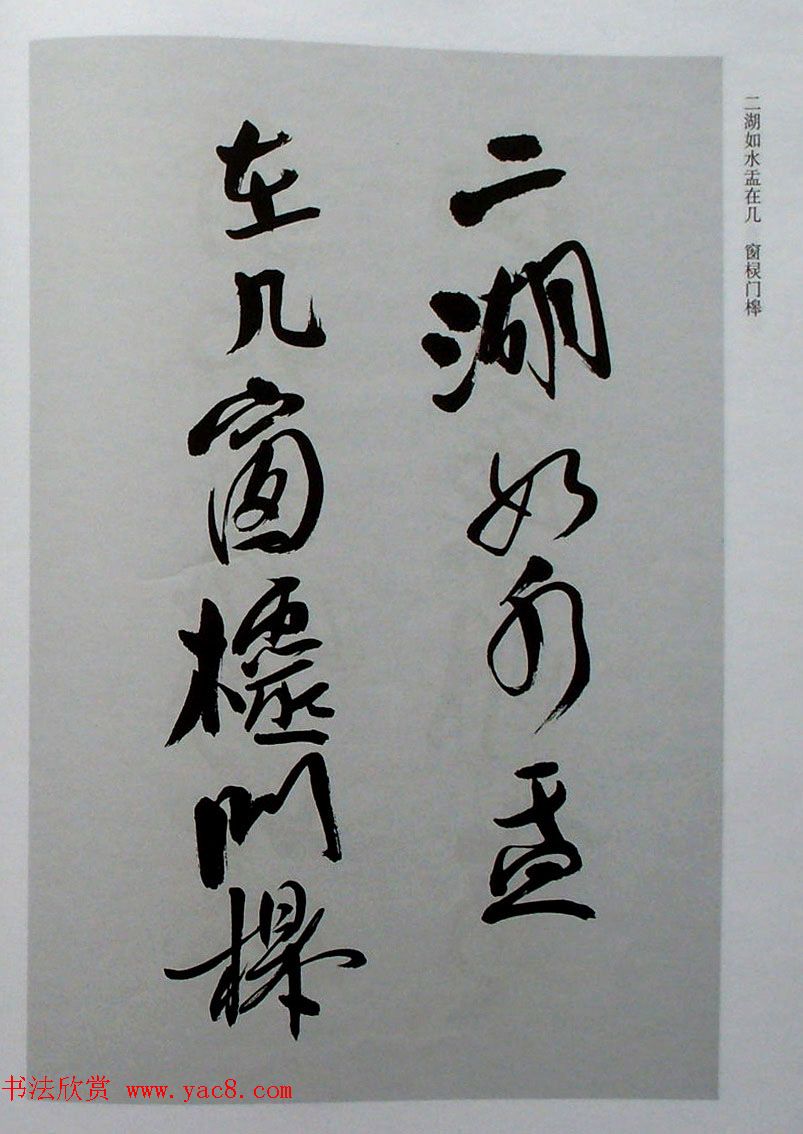 二湖如水盂在几　窗棂门槔
二湖如水盂
在几窗櫺门槔
书法欣赏 www.yac8.com